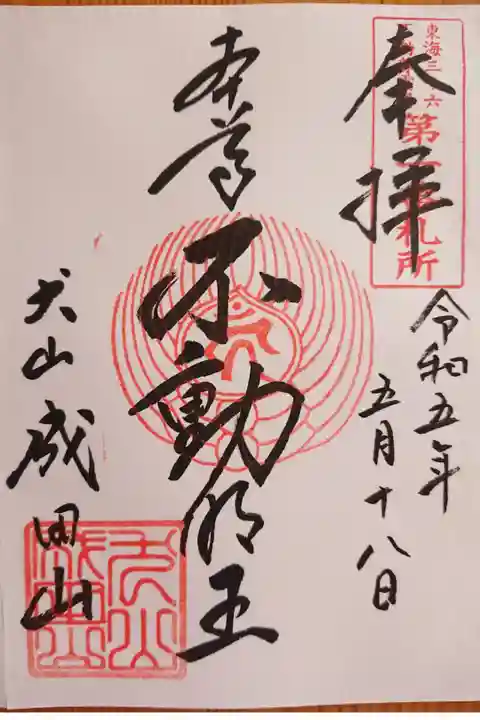 奉拝
東海三十六
第一番札所
令和五年
五月十八日
本尊
不動明王
犬山成田山